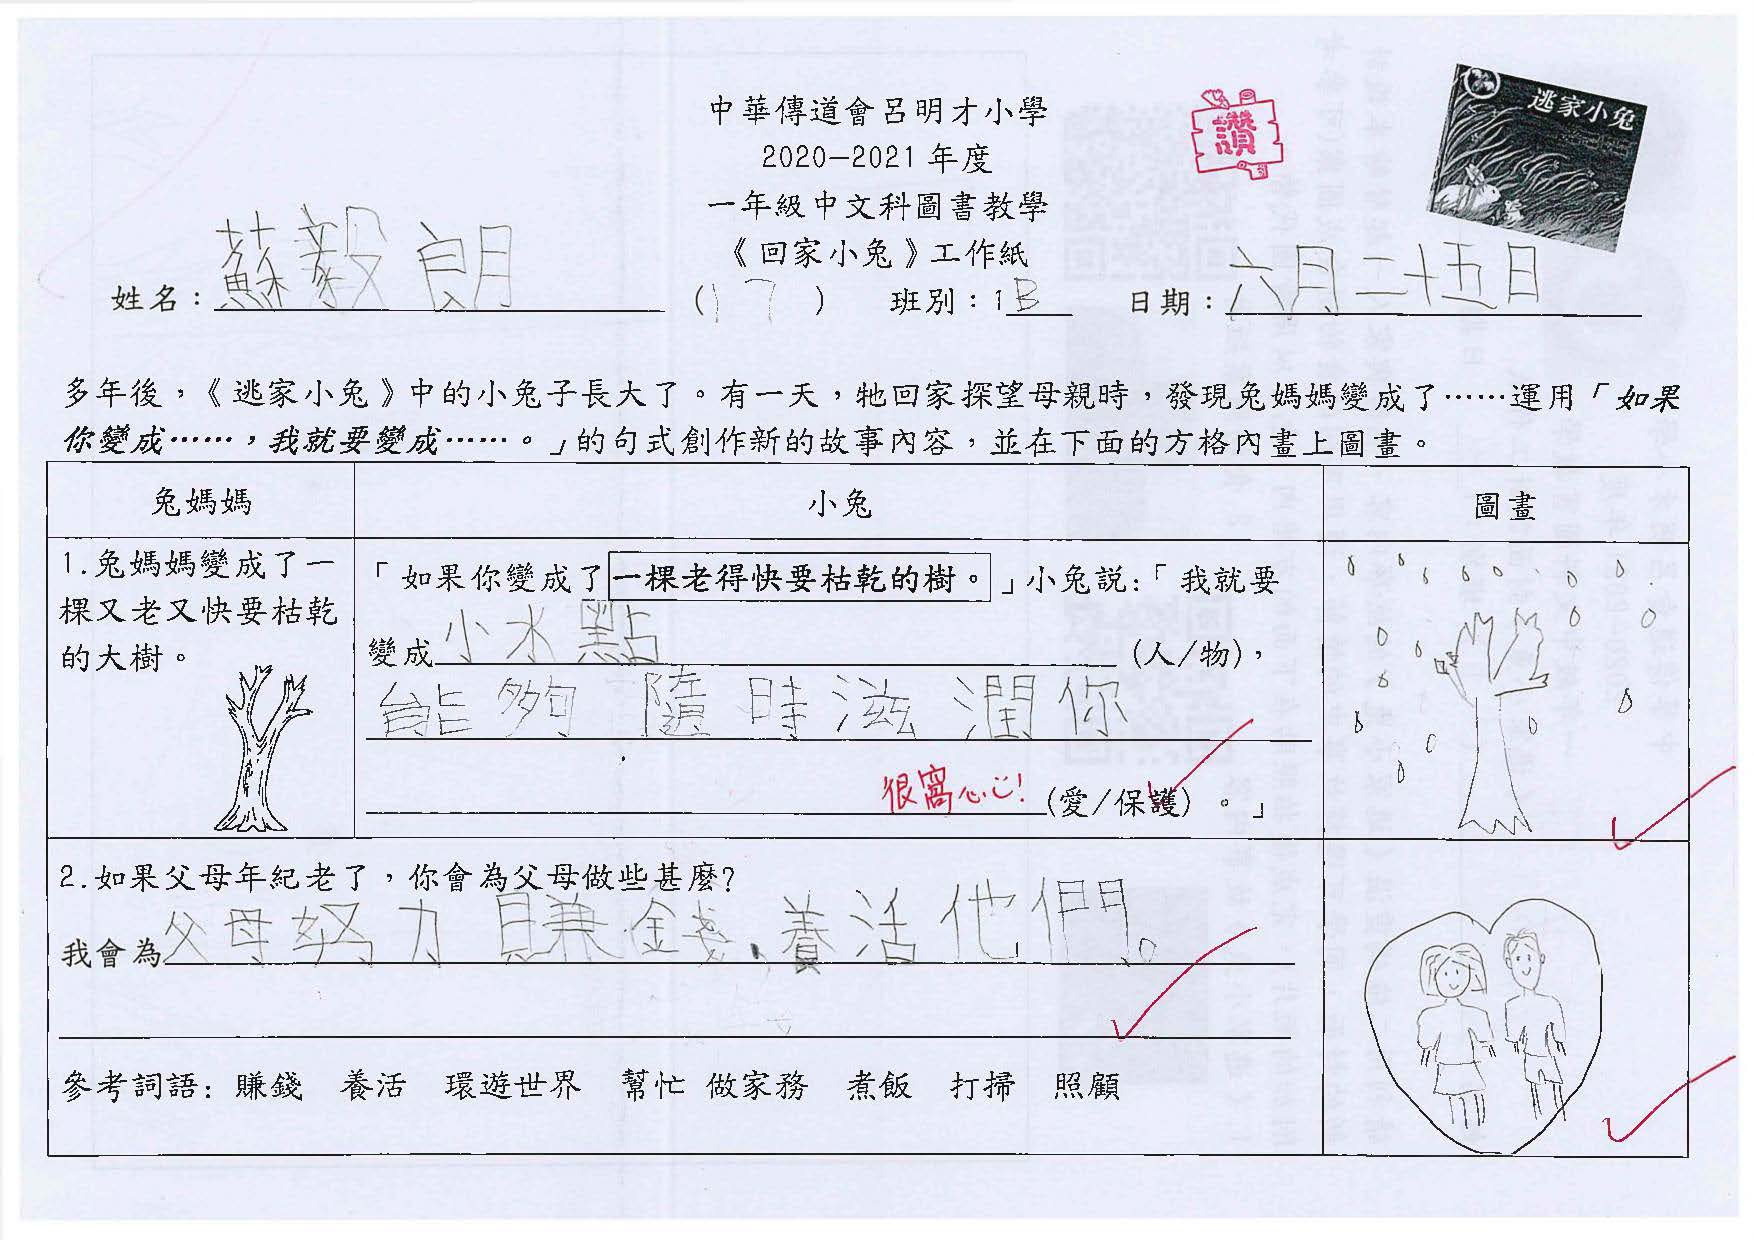 中華傳道會呂明才小學
2020-2021 年度
讚
逃家小兔
一年級中文科圖書教學
《回家小兔》工作紙
姓名：蘇毅朗 (17) 班別：1B 日期：六月二十五日
多年後，《逃家小兔》中的小兔子長大了。有一天，牠回家探望母親時，發現兔媽媽變成了……運用「如果
你變成……，我就要變成……。」的句式創作新的故事內容，並在下面的方格內畫上圖畫。
兔媽媽 小兔 圖畫
1.兔媽媽變成了一
棵又老又快要枯乾
的大樹。
「如果你變成了一棵老得快要枯乾的樹。」小兔說:「我就要
變成小水點(人/物)，
能夠隨時滋潤你
很窩心! (愛/保護)。」
2.如果父母年紀老了，你會為父母做些甚麼?
我會為父母努力賺錢，養活他們。
參考詞語: 賺錢 養活 環遊世界 幫忙 做家務 煮飯 打掃 照顧